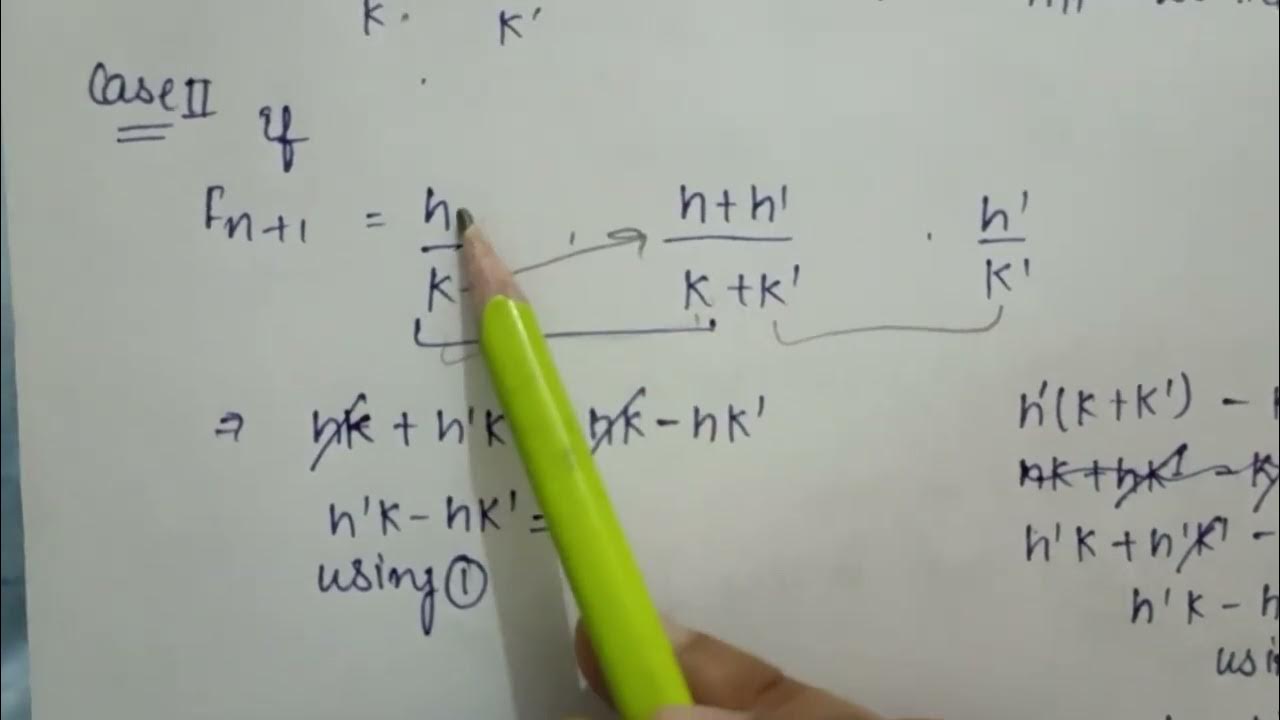 k. k'
Case II if
Fn+1 = h/k (h+h')/(k+k') . h'/k'
⇒ hk + h'k hk - hk'
h'k - hk' =
using ①
h'(k+k') -
hk + hk' -
h'k + h'k' -
h'k - h
usi